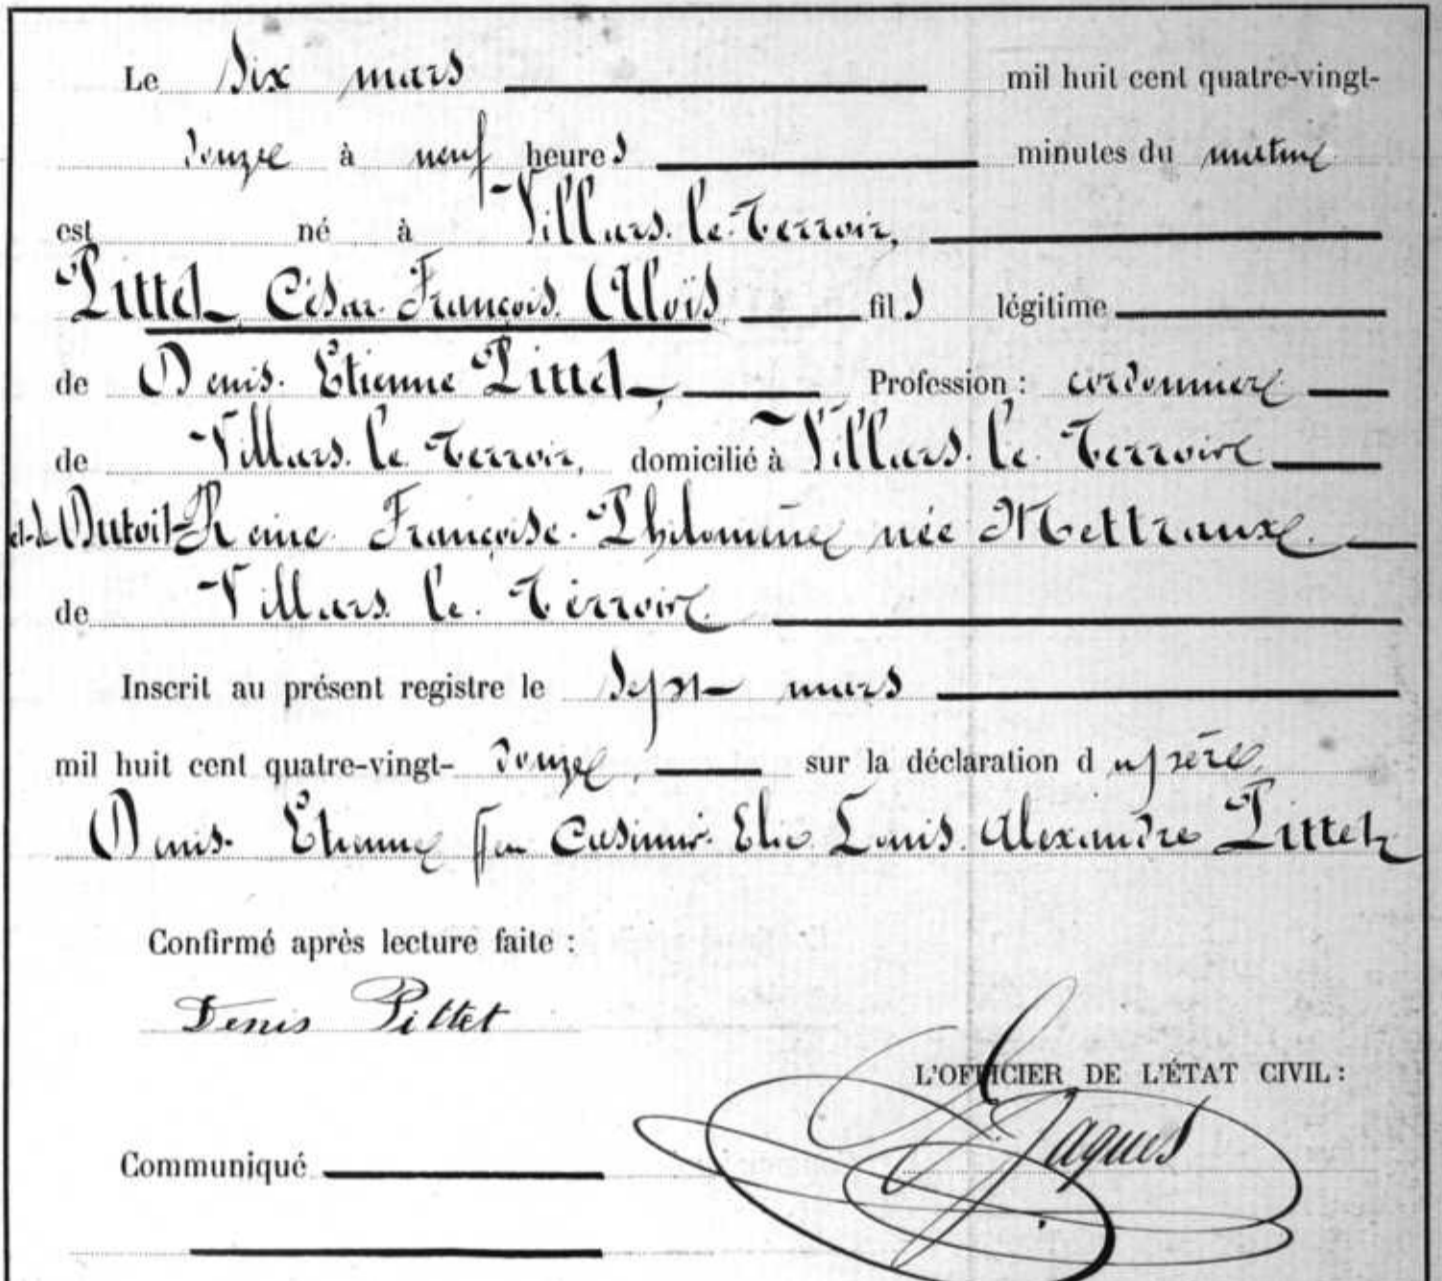 Le six mars mil huit cent quatre-vingt-
douze à neuf heures minutes du matin
est né à Villars-le-Terroir,
Pittet, César-François-Aloïs, fils légitime
de Denis-Etienne Pittet, Profession : cordonnier
de Villars-le-Terroir, domicilié à Villars-le-Terroir
et de Reine-Françoise-Philomène née Mettraux
de Villars-le-Terroir
Inscrit au présent registre le sept mars
mil huit cent quatre-vingt- douze, sur la déclaration du père,
Denis-Etienne ffeu Casimir-Elie-Louis-Alexandre Pittet
Confirmé après lecture faite :
Denis Pittet
L'OFFICIER DE L'ÉTAT CIVIL :
Jaques
Communiqué